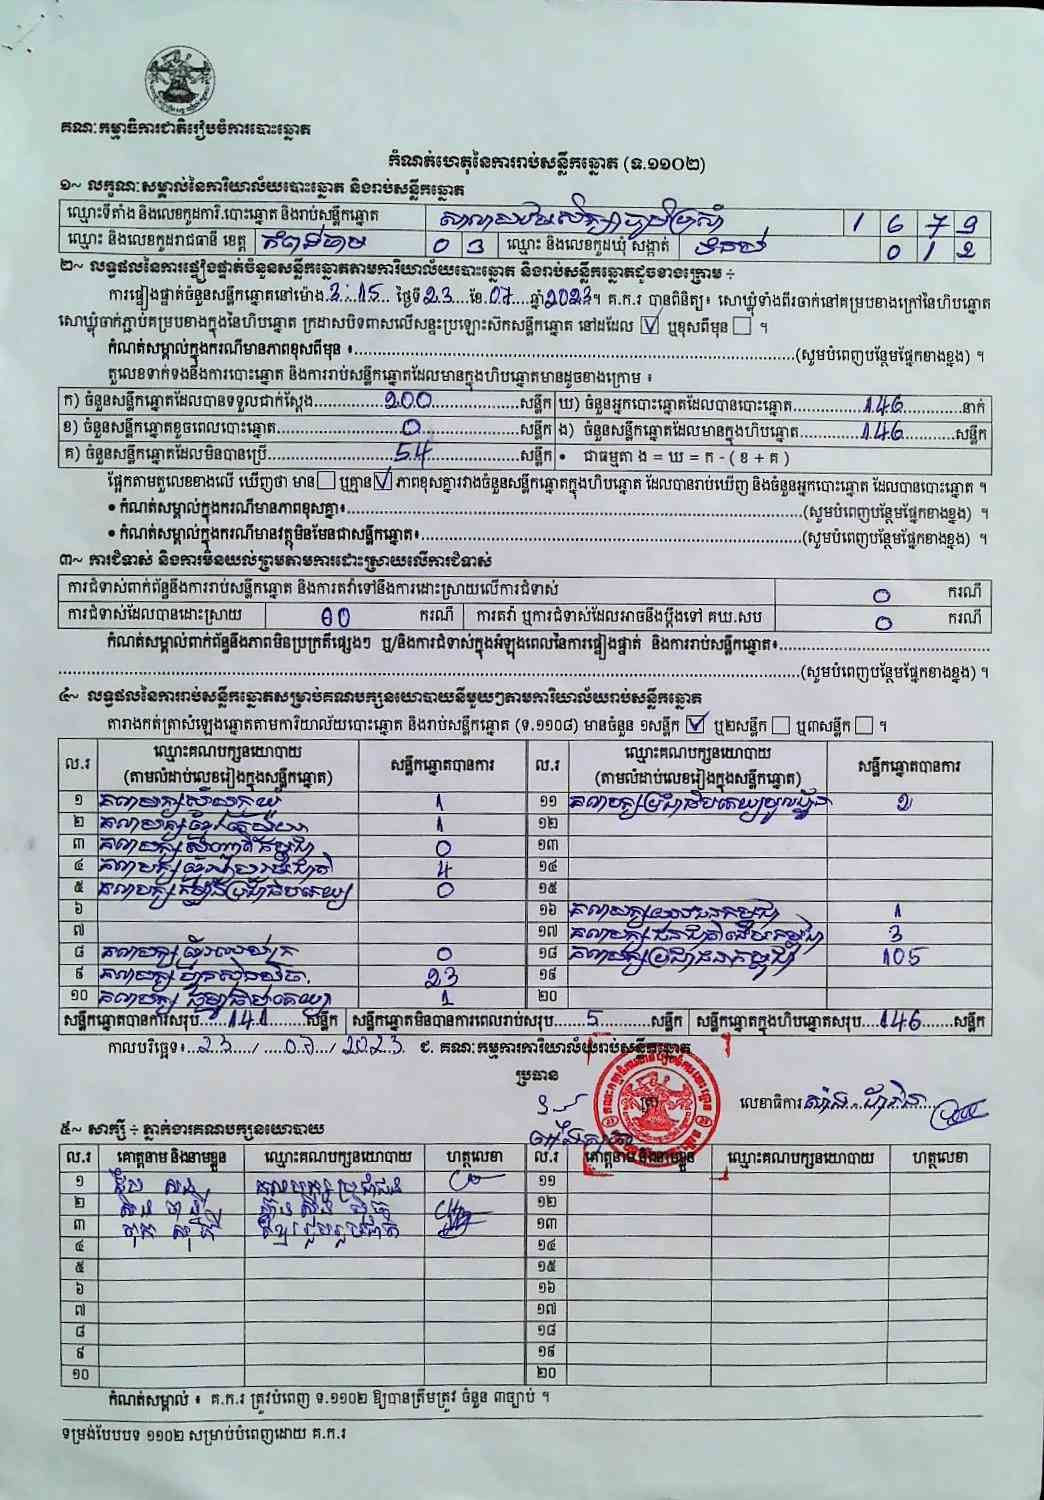 គណៈកម្មាធិការជាតិរៀបចំការបោះឆ្នោត
កំណត់ហេតុនៃការរាប់សន្លឹកឆ្នោត (ទ.១១០២)
១~ លក្ខណៈសម្គាល់នៃការិយាល័យបោះឆ្នោត និងរាប់សន្លឹកឆ្នោត
ឈ្មោះទីតាំង និងលេខកូដការិ.បោះឆ្នោត និងរាប់សន្លឹកឆ្នោត 1 6 7 9
ឈ្មោះ និងលេខកូដរាជធានី ខេត្ត កំពង់ចាម 0 3 ឈ្មោះ និងលេខកូដឃុំ សង្កាត់ 0 1 2
២~ លទ្ធផលនៃការផ្ទៀងផ្ទាត់ចំនួនសន្លឹកឆ្នោតតាមការិយាល័យបោះឆ្នោត និងរាប់សន្លឹកឆ្នោតដូចខាងក្រោម ÷
ការផ្ទៀងផ្ទាត់ចំនួនសន្លឹកឆ្នោតនៅម៉ោង 3:15 ថ្ងៃទី 23 ខែ 07 ឆ្នាំ 2023។ គ.ក.រ បានពិនិត្យ៖ សោឃ្លុំទាំងពីរចាក់នៅគម្របខាងក្រៅនៃហិបឆ្នោត
សោឃ្លុំចាក់ភ្ជាប់គម្របខាងក្នុងនៃហិបឆ្នោត ក្រដាសបិទពាសលើសន្ទះប្រឡោះស៊កសន្លឹកឆ្នោត នៅដដែល ☑ ឬខុសពីមុន ☐ ។
កំណត់សម្គាល់ក្នុងករណីមានភាពខុសពីមុន ៖ (សូមបំពេញបន្ថែមផ្នែកខាងខ្នង) ។
តួលេខទាក់ទងនឹងការបោះឆ្នោត និងការរាប់សន្លឹកឆ្នោតដែលមានក្នុងហិបឆ្នោតមានដូចខាងក្រោម ៖
ក) ចំនួនសន្លឹកឆ្នោតដែលបានទទួលជាក់ស្តែង 200 សន្លឹក ឃ) ចំនួនអ្នកបោះឆ្នោតដែលបានបោះឆ្នោត 146 នាក់
ខ) ចំនួនសន្លឹកឆ្នោតខូចពេលបោះឆ្នោត 0 សន្លឹក ង) ចំនួនសន្លឹកឆ្នោតដែលមានក្នុងហិបឆ្នោត 146 សន្លឹក
គ) ចំនួនសន្លឹកឆ្នោតដែលមិនបានប្រើ 54 សន្លឹក • ជាធម្មតា ង = ឃ = ក - ( ខ + គ )
ផ្អែកតាមតួលេខខាងលើ ឃើញថា មាន ☐ ឬគ្មាន ☑ ភាពខុសគ្នារវាងចំនួនសន្លឹកឆ្នោតក្នុងហិបឆ្នោត ដែលបានរាប់ឃើញ និងចំនួនអ្នកបោះឆ្នោត ដែលបានបោះឆ្នោត ។
• កំណត់សម្គាល់ក្នុងករណីមានភាពខុសគ្នា៖ (សូមបំពេញបន្ថែមផ្នែកខាងខ្នង) ។
• កំណត់សម្គាល់ក្នុងករណីមានវត្ថុមិនមែនជាសន្លឹកឆ្នោត៖ (សូមបំពេញបន្ថែមផ្នែកខាងខ្នង) ។
៣~ ការជំទាស់ និងការមិនយល់ព្រមតាមការដោះស្រាយលើការជំទាស់
ការជំទាស់ពាក់ព័ន្ធនឹងការរាប់សន្លឹកឆ្នោត និងការតវ៉ាទៅនឹងការដោះស្រាយលើការជំទាស់ 0 ករណី
ការជំទាស់ដែលបានដោះស្រាយ 00 ករណី ការតវ៉ា ឬការជំទាស់ដែលអាចនឹងប្តឹងទៅ គឃ.សប 0 ករណី
កំណត់សម្គាល់ពាក់ព័ន្ធនឹងភាពមិនប្រក្រតីផ្សេងៗ ឬ/និងការជំទាស់ក្នុងអំឡុងពេលនៃការផ្ទៀងផ្ទាត់ និងការរាប់សន្លឹកឆ្នោត៖
(សូមបំពេញបន្ថែមផ្នែកខាងខ្នង) ។
៤~ លទ្ធផលនៃការរាប់សន្លឹកឆ្នោតសម្រាប់គណបក្សនយោបាយនីមួយៗតាមការិយាល័យរាប់សន្លឹកឆ្នោត
តារាងកត់ត្រាសំឡេងឆ្នោតតាមការិយាល័យបោះឆ្នោត និងរាប់សន្លឹកឆ្នោត (ទ.១១០៨) មានចំនួន ១សន្លឹក ☑ ឬ២សន្លឹក ☐ ឬ៣សន្លឹក ☐ ។
ល.រ ឈ្មោះគណបក្សនយោបាយ (តាមលំដាប់លេខរៀងក្នុងសន្លឹកឆ្នោត) សន្លឹកឆ្នោតបានការ ល.រ ឈ្មោះគណបក្សនយោបាយ (តាមលំដាប់លេខរៀងក្នុងសន្លឹកឆ្នោត) សន្លឹកឆ្នោតបានការ
១ 1 ១១ 2
២ 1 ១២
៣ 0 ១៣
៤ 4 ១៤
៥ 0 ១៥
៦ ១៦ គណបក្សយុវជនកម្ពុជា 1
៧ ១៧ 3
៨ 0 ១៨ គណបក្សប្រជាជនកម្ពុជា 105
៩ 23 ១៩
១០ 1 ២០
សន្លឹកឆ្នោតបានការសរុប 141 សន្លឹក សន្លឹកឆ្នោតមិនបានការពេលរាប់សរុប 5 សន្លឹក សន្លឹកឆ្នោតក្នុងហិបឆ្នោតសរុប 146 សន្លឹក
កាលបរិច្ឆេទ៖ 23 / 07 / 2023 ជ. គណៈកម្មការការិយាល័យរាប់សន្លឹកឆ្នោត
ប្រធាន
ត្រា លេខាធិការ
៥~ សាក្សី ÷ ភ្នាក់ងារគណបក្សនយោបាយ
ល.រ គោត្តនាម និងនាមខ្លួន ឈ្មោះគណបក្សនយោបាយ ហត្ថលេខា ល.រ គោត្តនាម និងនាមខ្លួន ឈ្មោះគណបក្សនយោបាយ ហត្ថលេខា
១ ១១
២ ១២
៣ ១៣
៤ ១៤
៥ ១៥
៦ ១៦
៧ ១៧
៨ ១៨
៩ ១៩
១០ ២០
កំណត់សម្គាល់ ៖ គ.ក.រ ត្រូវបំពេញ ទ.១១០២ ឱ្យបានត្រឹមត្រូវ ចំនួន ៣ច្បាប់ ។
ទម្រង់បែបបទ ១១០២ សម្រាប់បំពេញដោយ គ.ក.រ